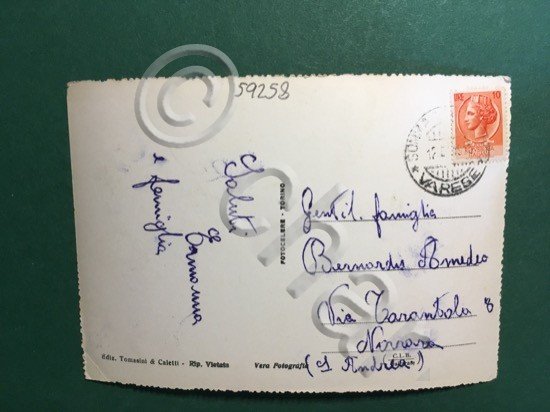 59258
LIRE 10
VARESE
Saluti
e famiglia
FOTOCELERE - TORINO
Gentil. famiglia
Bernardis Amedeo
Via Tarantola 8
Novara
(S. Andrea)
Ediz. Tomasini & Caletti - Rip. Vietata
Vera Fotografia